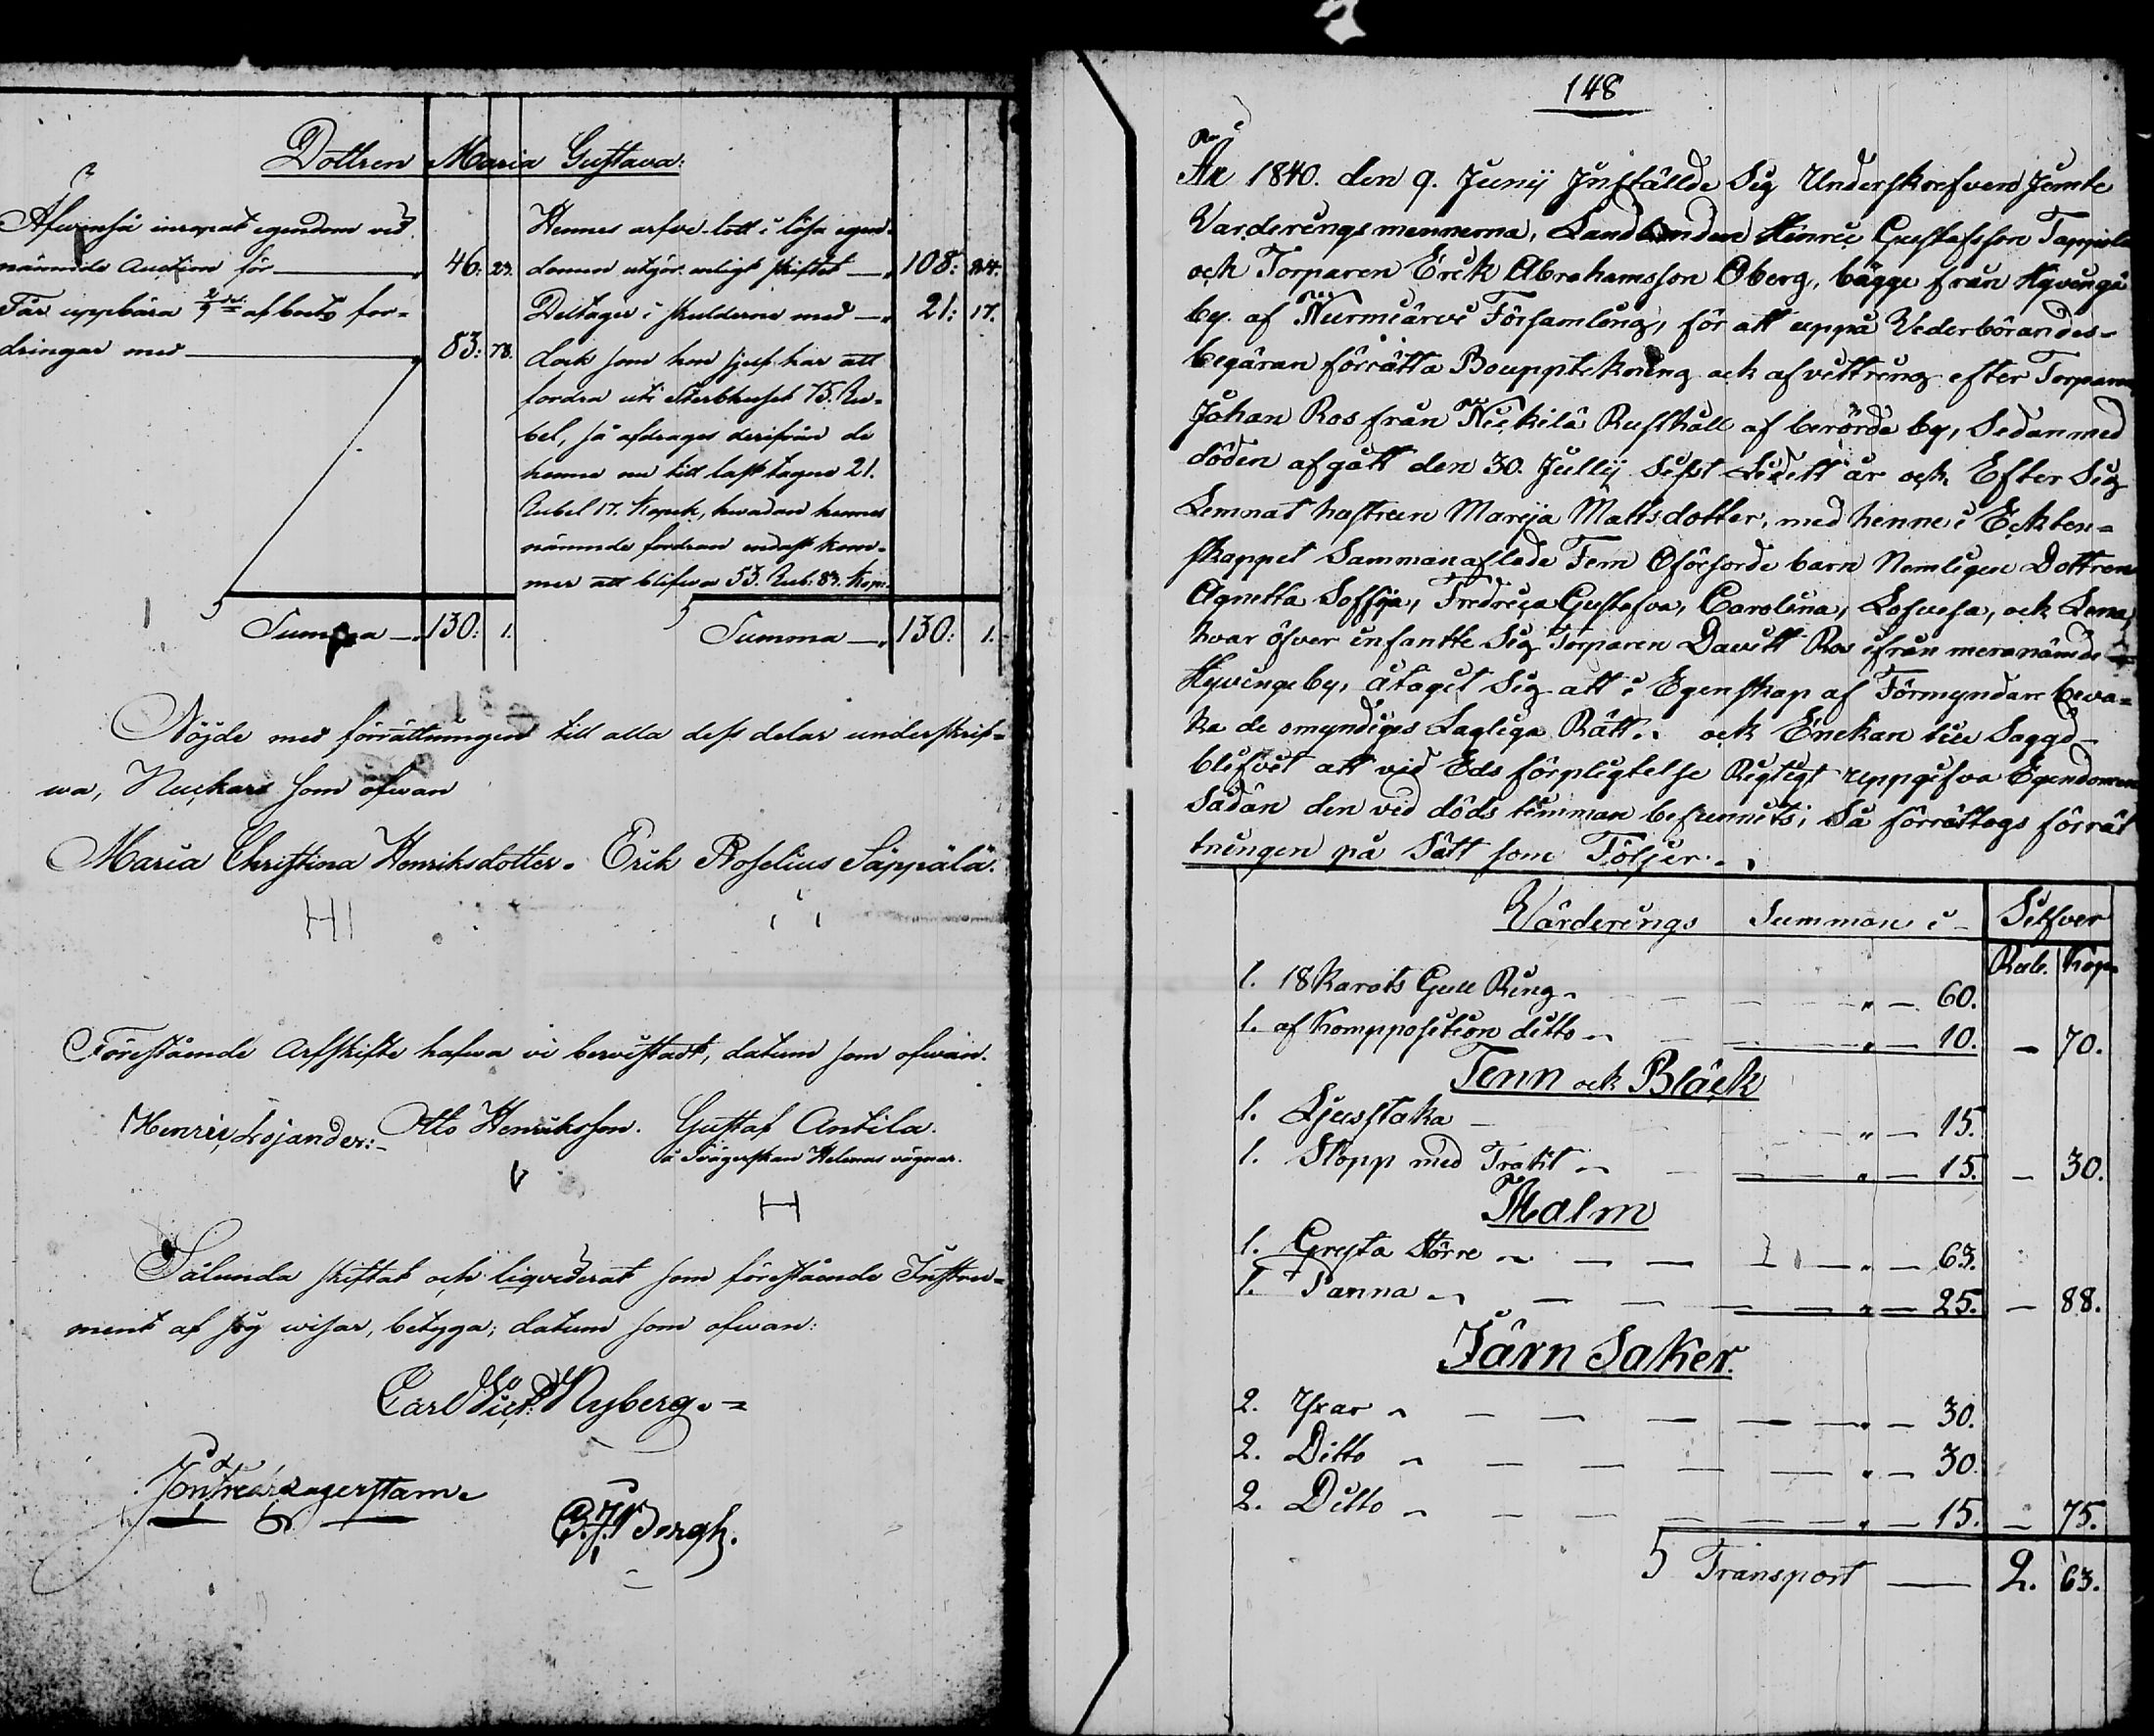 Dottren Maria Gustava:
Afvenså inropat egendom vid
nämnde Auction för — 46: 23.
Får uppbära 2/9 af boets for-
dringar med — 83: 78.
Summa — 130: 1.
Hennes arfve-lott i lösa egen-
domen utgör enligt skiftet — 108: 84.
Deltager i skulderne med — 21: 17.
dock som hon sjelf har att
fordra uti Sterbhuset 75. Ru-
bel, så afdrages derifrån de
henne nu till last tagne 21.
Rubel 17. Kopek, hvadan hennes
nämnde fordran endast kom-
mer att blifva 53. Rub. 83. Kop.
Summa — 130: 1.
Nöjde med förrättningen till alla dess delar underskrif-
wa, Nuckari som ofwan
Maria Christina Henriksdotter. Erik Roselius Säppälä.
Förestående arfskifte hafwa vi bevistadt, datum som ofwan.
Henric Lojander:- Otto Henriksson. Gustaf Antila.
å Svägerskan Helenas vägnar.
Sålunda skiftat och liqviderat som förestående Instru-
ment af sig wisar, betyga; datum som ofwan:
Carl Gust: Nyberg.
Lagerstam
Bergh.
148
År 1840. den 9. Junij Inställde Sig Underskrefvend Jemte
Varderingsmennerna, Landbonden Henric Gustafsson Tappiola
och Torparen Erick Abrahamsson Öberg, bägge från Hyvingä
by. af Nurmiärvi Församling, för att uppå Vederbörandes-
begäran förrätta Bouppteckning ock afvittring efter Torparen
Johan Ros från Nickilä Rusthåll af berörde by, Sedan med
döden afgått den 30. Jullij Sist Ledett år och Efter Sig
Lemnat hustrun Mareja Mattsdotter, med henne i Eckten-
skappet Sammanaflade Fem Oförsorde barn Nemligen Dottren
Agnetta Soffija, Fredrica Gustafva, Carolina, Lovisa, ock Lena,
hvar öfver infantte Sig Torparen Davitt Ros ifrån meranämde
Hyvinge by, åtaget Sig att i Egenskap af Förmyndare beva-
ka de omyndiges Lagliga Rätt. ock Enckan till Sagd
blifvit att vid Eds förpligtelse Rigtigt uppgifva Egendomen
Sådan den vid döds timman befunnits; Så förrättags förrät
tningen på Sätt som Följer.
Värderings Summan i- Silfver
Rub. Kop.
1. 18 Karats Gull Ring — 60.
1. af Kompposition ditto — 10. — 70.
Tenn ock Bläck
1. Ljusstaka — 15.
1. Stopp med Tratt — 15. — 30.
Malm
1. Gryta Större — 63.
1. Panna — 25. — 88.
Järn Saker.
2. Yxar — 30.
2. Ditto — 30.
2. Ditto — 15. — 75.
Transport — 2. 63.